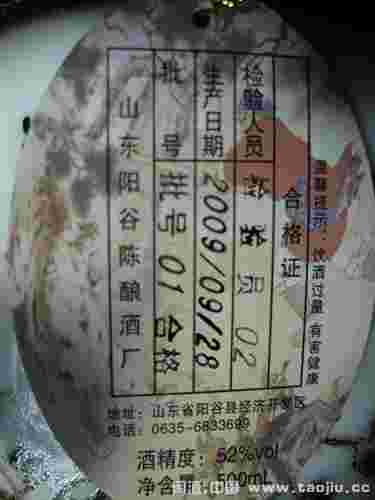 合格证
检验人员 检验员 02
生产日期 2009/09/28
批号 批号 01 合格
山东阳谷陈酿酒厂
温馨提示：饮酒过量 有害健康
地址：山东省阳谷县经济开发区
电话：0635-6833699
酒精度：52%vol
净含量：500ml
www.taojiu.cc